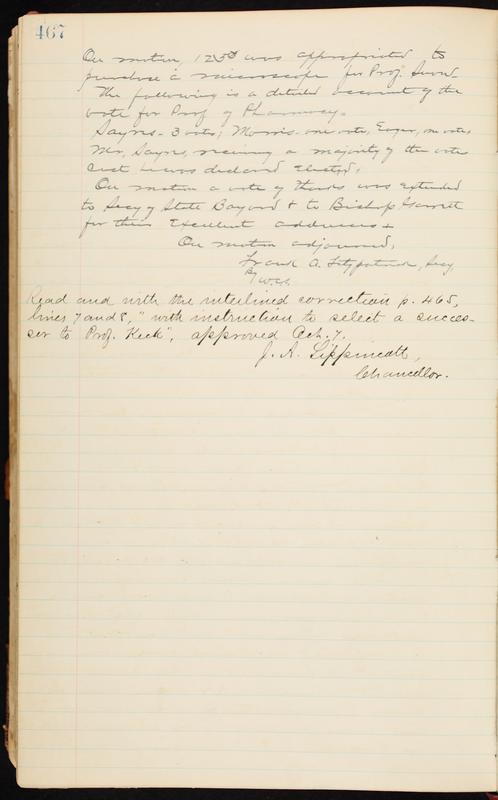 467
On motion, 125.00 was appropriated to
purchase a microscope for Prof.
The following is a detailed account of the
vote for Prof of Pharmacy.
Sayre - 3 votes; Morris - one vote, no votes
Mr. Sayre, receiving a majority of the votes
cast he was declared elected.
On motion a vote of thanks was extended
to Secy of State Bayard & to Bishop
for their Excellent addresses
On motion adjourned,
Frank A. Fitzpatrick, Secy
By
Read and with the interlined correction p. 465,
lines 7 and 8, "with instruction to select a succes-
sor to Prof. Keck", approved Oct. 7.
J. A. Lippincott,
Chancellor.